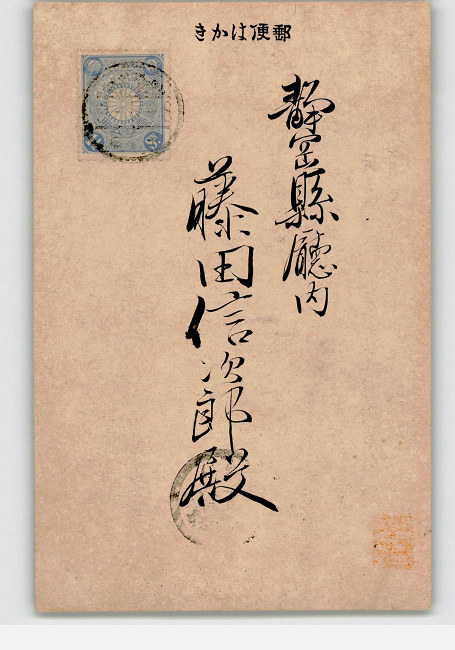 郵便はかき
靜岡縣廳内
藤田信次郎殿